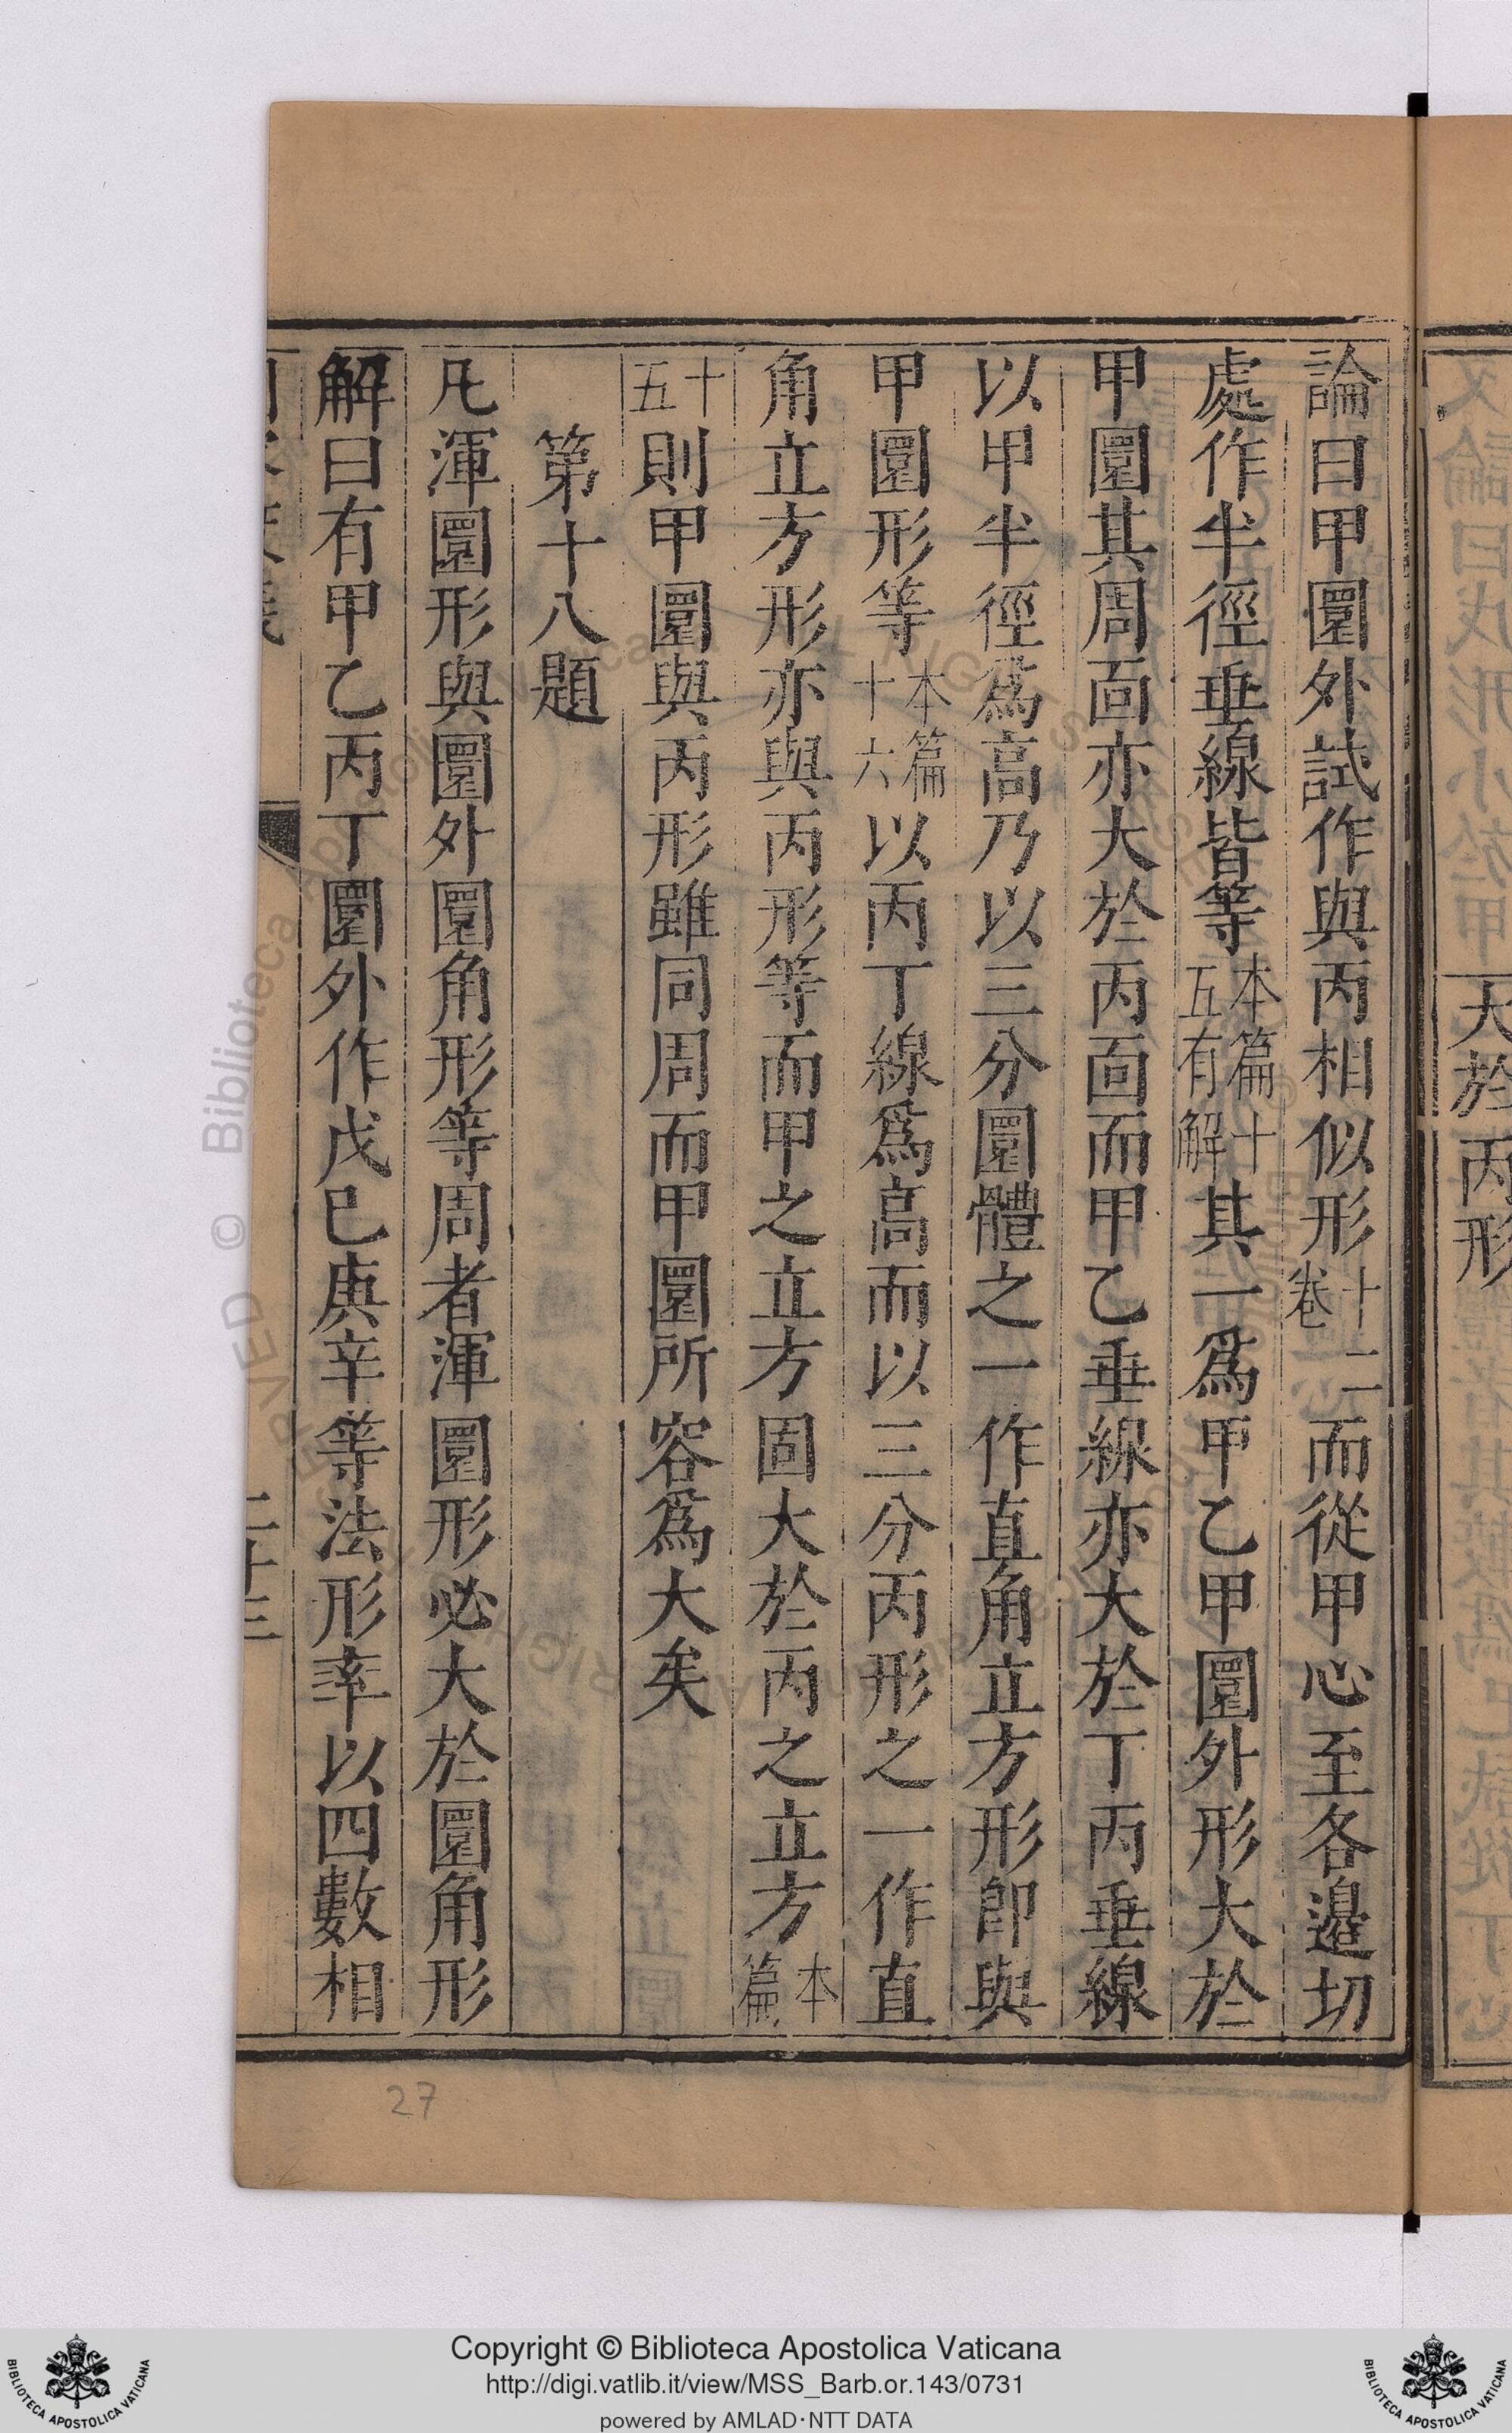 論曰甲圜外試作與丙相似形十二卷一而從甲心至各邉切
處作半徑垂線皆等本篇十五有解其一爲甲乙甲圜外形大於
甲圜其周面亦大於丙面而甲乙垂線亦大於丁丙垂線
以甲半徑爲高乃以三分圜體之一作直角立方形卽與
甲圜形等本篇十六以丙丁線爲高而以三分丙形之一作直
角立方形亦與丙形等而甲之立方固大於丙之立方本篇
十五則甲圜與丙形雖同周而甲圜所容爲大矣
第十八題
凡渾圜形與圜外圜角形等周者渾圜形必大於圜角形
解曰有甲乙丙丁圜外作戊己庚辛等法形率以四數相
二十三
大於丙形
27
© Biblioteca Apostolica Vaticana
Copyright © Biblioteca Apostolica Vaticana
http://digi.vatlib.it/view/MSS_Barb.or.143/0731
powered by AMLAD·NTT DATA
BIBLIOTECA APOSTOLICA VATICANA
BIBLIOTECA APOSTOLICA VATICANA